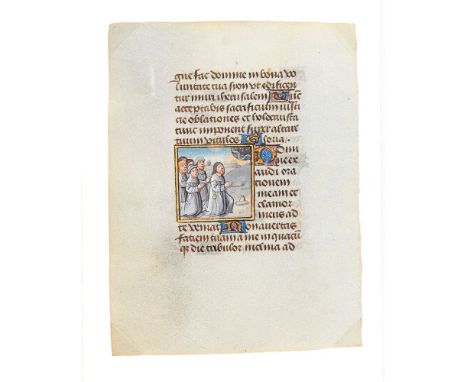 gne fac domine in bona vo
luntate tua syon ut edificen
tur muri iherusalem Tunc
acceptabis sacrificium iusti
cie oblationes et holocausta
tunc imponent super altare
tuum vitulos Gloria
Domi
ne ex
audi ora
tionem
meam et
clamor
meus ad
te veniat Non avertas
faciem tuam a me in quacu
q die tribulor inclina ad